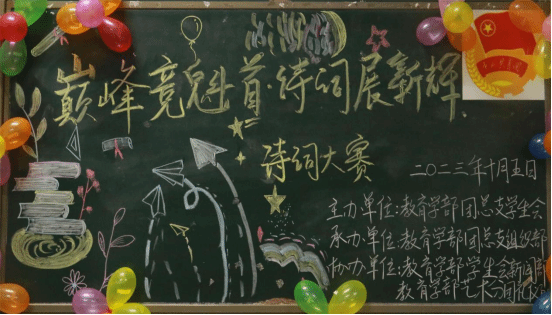 巅峰竞魁首·诗词展新辉
诗词大赛
二〇二三年十月五日
主办单位:教育学部团总支学生会
承办单位:教育学部团总支组织部
协办单位:教育学部学生会新闻部
教育学部艺术